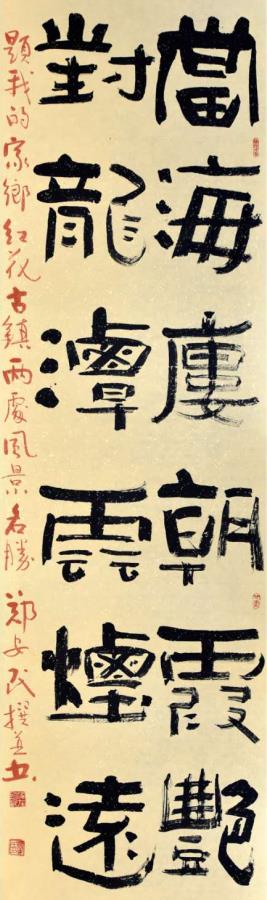 當海廔朝霞艷
對龍潭雲煙遠
題我的家鄉红花古鎮兩處風景名勝 郑安民撰并书